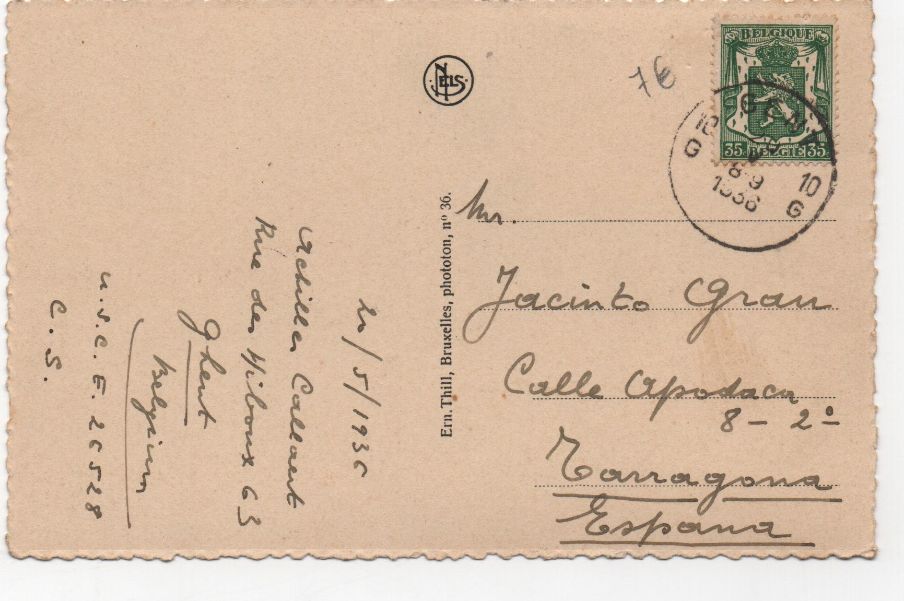 20/5/1936
Achilles Callaert
Rue des Hiboux 63
Ghent
Belgium
U.S.C.E. 26528
C.S.
NELS
Ern. Thill, Bruxelles, phototon, nº 36.
7€
BELGIQUE
35 BELGIE 35
GENT
8-9
1936
10
G G
Mr.
Jacinto Grau
Calle Apodaca
8 - 2º
Tarragona
Espana